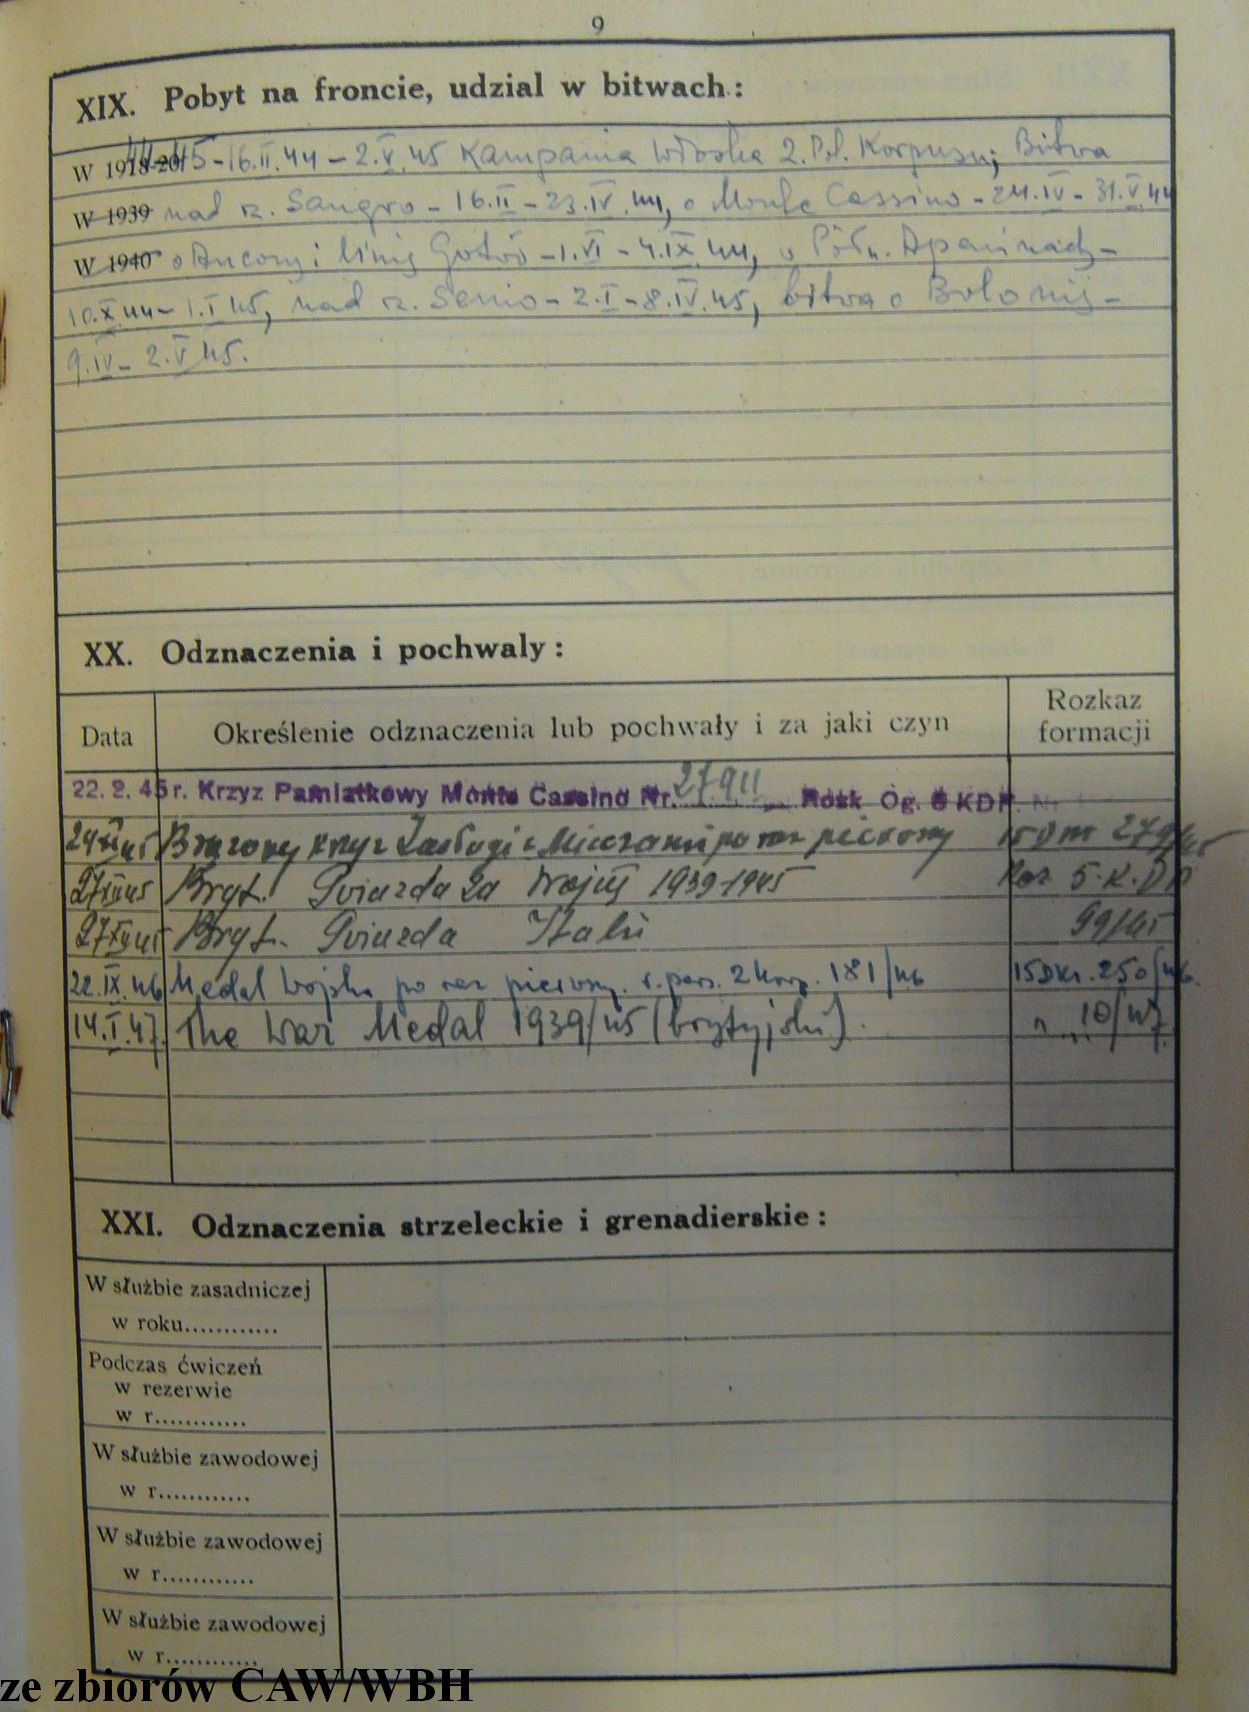 9
XIX. Pobyt na froncie, udzial w bitwach:
W 1918-20 44-45 - 16.II.44 - 2.V.45 Kampania Włoska 2. Pol. Korpusu; Bitwa
W 1939 nad rz. Sangro - 16.II - 23.IV.44, o Monte Cassino - 24.IV - 31.V.44
W 1940 o Anconę i linię Gotów - 1.VI - 4.IX.44, w Półn. Apeninach -
10.X.44 - 1.I.45, nad rz. Senio - 2.I - 8.IV.45, bitwa o Bolonię -
9.IV - 2.V.45.
XX. Odznaczenia i pochwaly:
Data Określenie odznaczenia lub pochwały i za jaki czyn Rozkaz formacji
22.2.45r. Krzyz Pamiatkowy Monte Cassino Nr. 27911 Rozk Og. 5 KDP. Nr
24 XI 45 Brązowy Krzyż Zasługi z Mieczami po raz pierwszy 279/45
27 XII 45 Bryt. Gwiazda za Wojnę 1939-1945 Roz 5. K.D.P.
27 XII 45 Bryt. Gwiazda Italii 99/45
22.IX.46 Medal Wojska po raz pierwszy r. pers. 2 Korp. 181/46 250/46.
14.I.47. The War Medal 1939/45 (brytyjski). " 10/47.
XXI. Odznaczenia strzeleckie i grenadierskie:
W służbie zasadniczej
w roku............
Podczas ćwiczeń
w rezerwie
w r............
W służbie zawodowej
w r............
W służbie zawodowej
w r............
W służbie zawodowej
w r............
ze zbiorów CAW/WBH